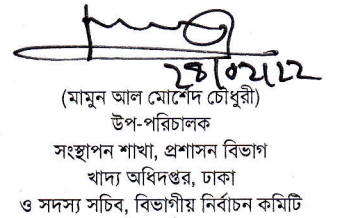 28/02/22
(মামুন আল মোর্শেদ চৌধুরী)
উপ-পরিচালক
সংস্থাপন শাখা, প্রশাসন বিভাগ
খাদ্য অধিদপ্তর, ঢাকা
ও সদস্য সচিব, বিভাগীয় নির্বাচন কমিটি